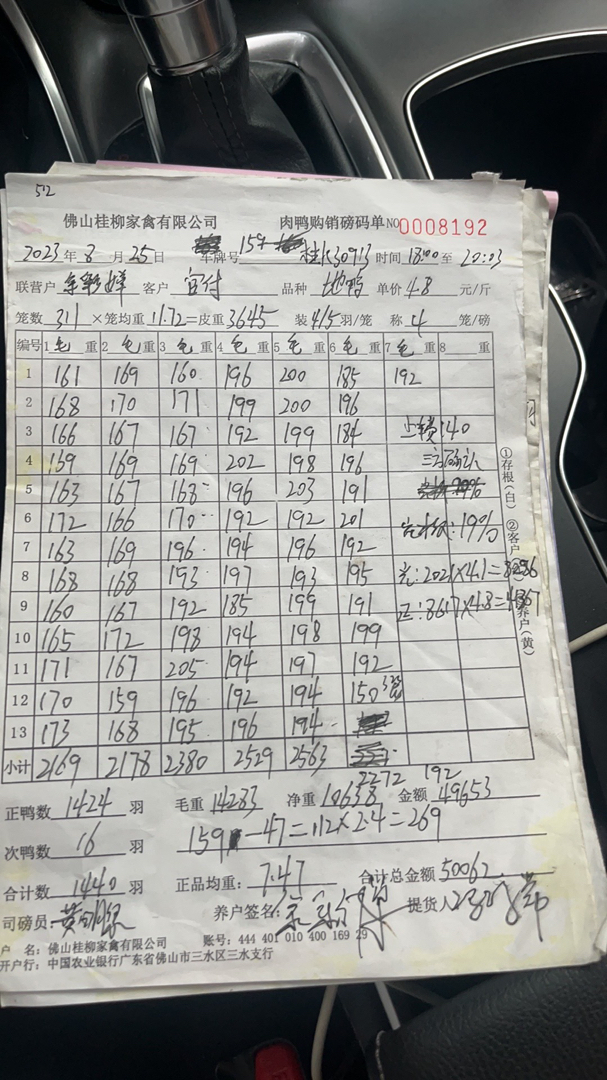 512
佛山桂柳家禽有限公司 肉鸭购销磅码单 NO 0008192
2023年8月25日 车牌号 159 桂K30913 时间 18:00 至 20:03
联营户 客户 宜付 品种 地鸭 单价 4.8 元/斤
笼数 311 ×笼均重 11.72 =皮重 3645 装 4/5 羽/笼 称 4 笼/磅
编号 1 毛 重 2 毛 重 3 毛 重 4 毛 重 5 毛 重 6 毛 重 7 毛 重 8 重
1 161 169 160 196 200 185 192
2 168 170 171 199 200 196
3 166 167 167 192 199 184 上锁:40
4 159 169 169 202 198 196 三方确认
5 163 167 168 196 203 191
6 172 166 170 192 192 201 19%
7 163 169 196 194 196 192
8 168 168 193 197 193 195 光:2021×4.1=8286
9 160 167 192 185 199 191 正:8617×4.8=41367
10 165 172 198 194 198 199
11 171 167 205 194 197 192
12 170 159 196 192 194 150
13 173 168 195 196 194
小计 2169 2178 2380 2529 2563 2272 192
正鸭数 1424 羽 毛重 14283 净重 10638 金额 49653
次鸭数 16 羽 159-47=112×2.4=269
合计数 1440 羽 正品均重: 7.47 合计总金额 50062
司磅员: 养户签名: 提货人
户 名: 佛山桂柳家禽有限公司 账号: 444 401 010 400 169 29
开户行: 中国农业银行广东省佛山市三水区三水支行
①存根(白) ②客户 养户(黄)